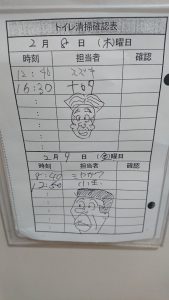 トイレ清掃確認表
2月8日(木)曜日
時刻 担当者 確認
12:40 スズキ
15:30
:
:
:
:
2月9日(金)曜日
時刻 担当者 確認
8:40 ミヤカワ
12:50
:
:
:
: